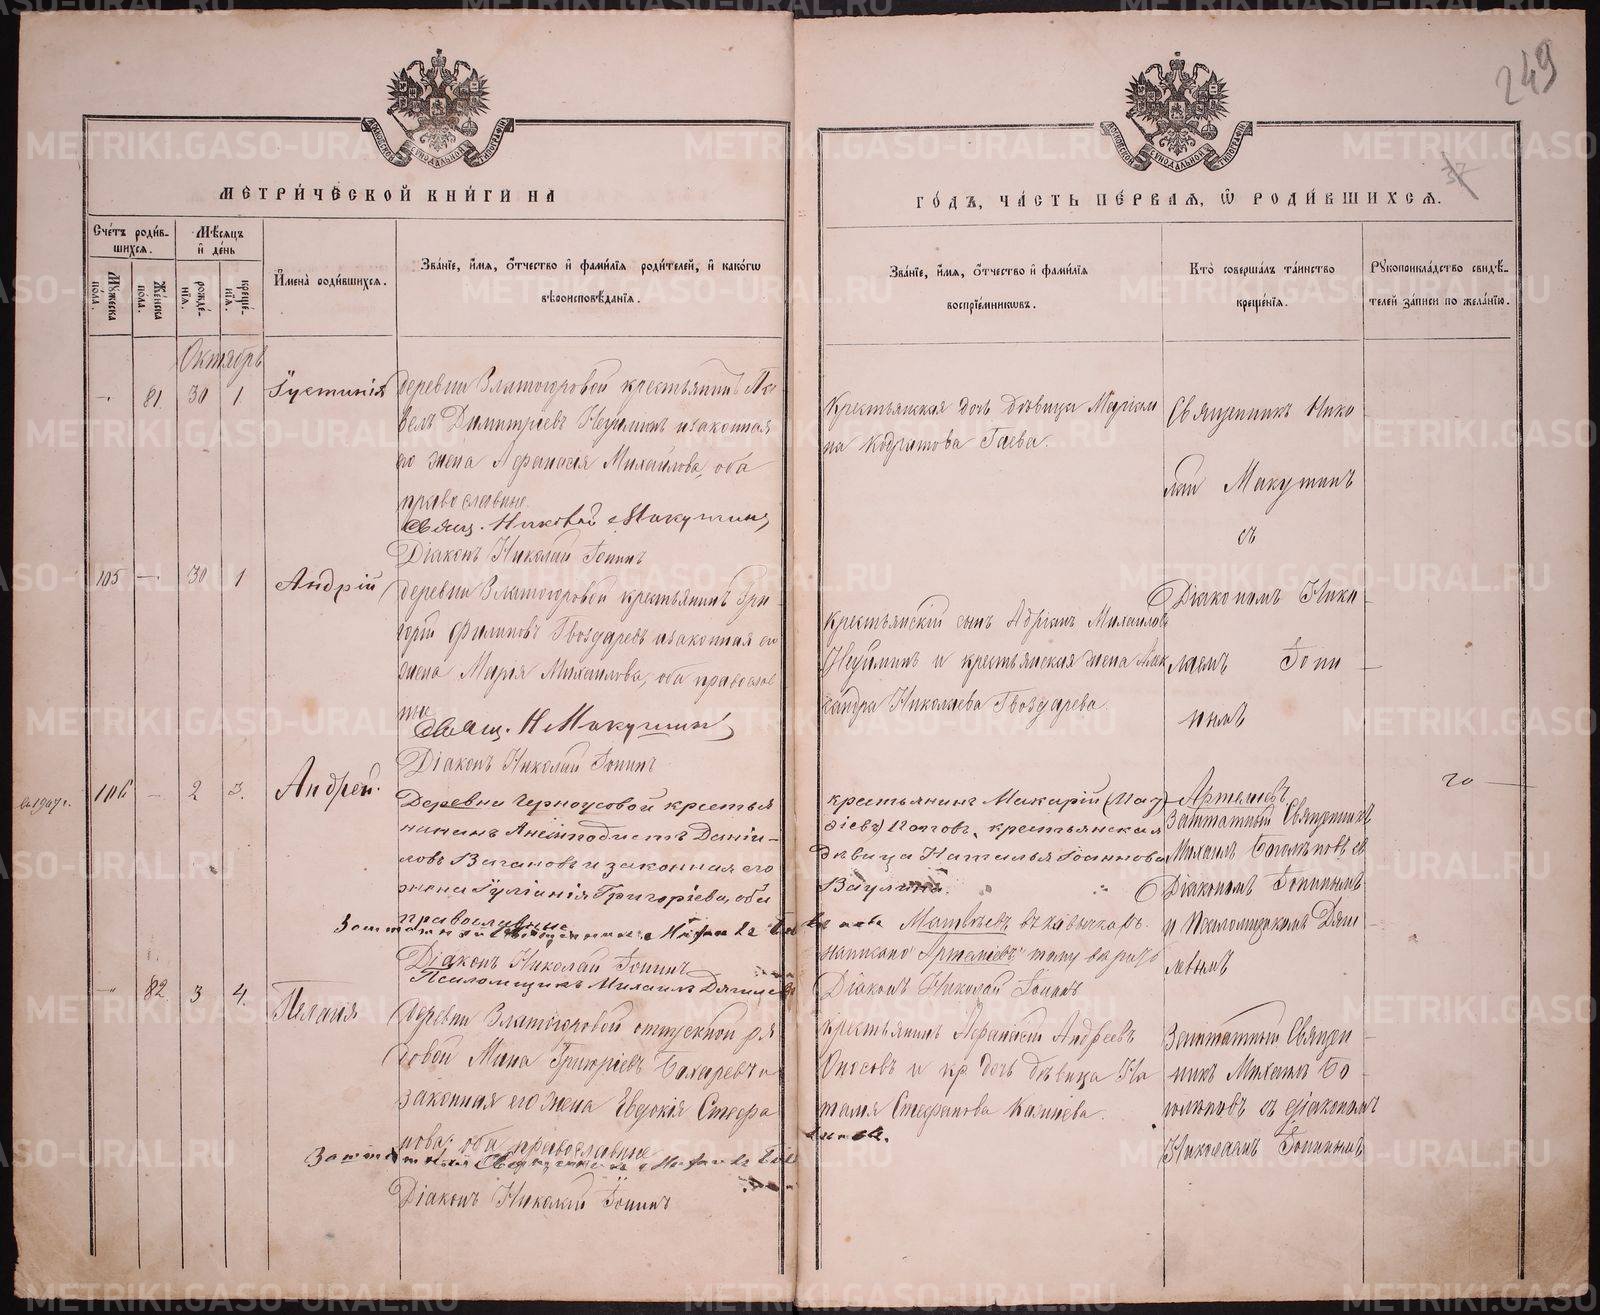 249
МЕТРИ́ЧЕСКОЙ КНИ́ГИ НА
ГО́ДЪ, ЧА́СТЬ ПЕ́РВАЯ, Ѽ РОДИ́ВШИХСЯ.
Сче́тъ роди́в-
шихся.
Му́жеска по́ла.
Же́нска по́ла.
Мѣ́сяцъ и҆ де́нь
рожде́нїѧ.
креще́нїѧ.
И҆мена̀ роди́вшихся.
Зва́нїе, и҆́мя, ѻ҆́тчество и҆ фами́лїя роди́телей, и҆ како́гѡ
вѣроисповѣ́данїя.
Зва́нїе, и҆́мя, ѻ҆́тчество и҆ фами́лїя
воспрїе́мникѡвъ.
Кто̀ соверша́лъ та́инство
креще́нїя.
Рꙋкоприкла́дство свидѣ́-
телей за́писи по жела́нїю.
Октябрь
81. 30 1. Іустинія
деревни Златогоровой крестьянинъ Па-
велъ Димитріевъ Неуйминъ и законная
его жена Афанасія Михайлова, оба
православные.
Свящ. Николай Макушинъ
Діаконъ Николай Іонинъ
Крестьянская дочь дѣвица Маріам
на Кодратова Гаева.
Священникъ Нико
лай Макушинъ
съ
Діакономъ Нико
лаемъ Іони
нымъ
105 — 30 1 Андрій
деревни Златогоровой крестьянинъ Гри-
горій Филиповъ Гвоздаревъ и законная его
жена Марія Михаилова, оба православ
ные
Свящ. Н Макушинъ
Діаконъ Николай Іонинъ
Крестьянскій сынъ Адріанъ Михаиловъ
Неуйминъ и крестьянская жена Алек
сандра Николаева Гвоздарева.
1907 г.
106 — 2 3. Андрей.
Деревни Черноусовой крестья
нинъ Анемподистъ Даніи-
ловъ Вагановъ и законная его
жена Іуліанія Григоріева, оба
православные
Заштатный Священникъ Михаилъ
Діаконъ Николай Іонинъ
Псаломщикъ Михаилъ Дягилевъ
крестьянинъ Макарій (Мат
ѳіевъ) Котовъ, крестьянская
дѣвица Наталья Іоаннова
Ваулина.
Матвѣевъ въ кавычкахъ
написано Артеміевъ тому вѣрить
Діаконъ Николай Іонинъ
Артемьевъ
Заштатный Священникъ
Михаилъ Боголѣповъ съ
Діакономъ Іонинымъ
и Псаломщикомъ Дяги
левымъ
— 82. 3 4. Пелагія
деревни Златогоровой отпускной ря
довой Мина Григоріевъ Бахаревъ и
законная его жена Евдокія Стефа
нова, оба православные
Заштатный Священникъ Михаилъ
Діаконъ Николай Іонинъ
крестьянинъ Афанасій Андреевъ
Оносовъ и кр дочь дѣвица На
талія Стефанова Казанцева.
Заштатный Священ
никъ Михаилъ Бо
голѣповъ съ діакономъ
Николаемъ Іонинымъ